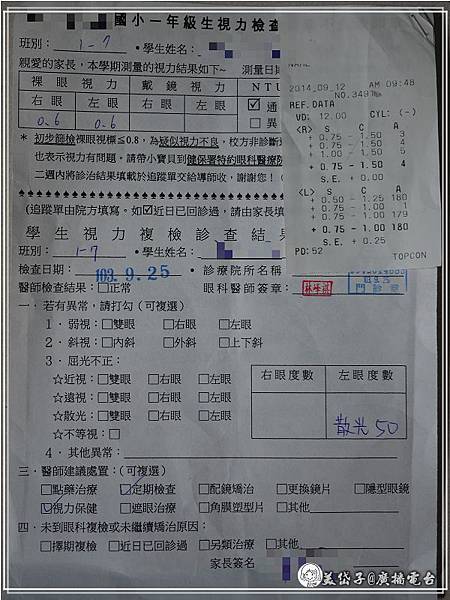 國小一年級生視力檢查
班別: 1-7 •學生姓名:
親愛的家長,本學期測量的視力結果如下~ 測量日期
裸眼視力 戴鏡視力 NTU
右眼 左眼 右眼 左眼 ☑通
0.6 0.6 □異
* 初步篩檢裸眼視標≦0.8,為疑似視力不良,校方非診斷
也表示視力有問題。請帶小寶貝到健保署特約眼科醫療院
二週內將診治結果填載於追蹤單交給導師收,謝謝您!
(追蹤單由院方填寫。如☑近日已回診過,請由家長填
學生視力複檢診查結果
班別: 1-7 •學生姓名:
檢查日期: 103.9.25 •診療院所名稱
醫師檢查結果:□正常 眼科醫師簽章:
門診章
一．若有異常,請打勾(可複選)
1．弱視:□雙眼 □右眼 □左眼
2．斜視:□內斜 □外斜 □上下斜
3．屈光不正:
☆近視:□雙眼 □右眼 □左眼
☆遠視:□雙眼 □右眼 □左眼
☆散光:□雙眼 □右眼 □左眼
☆不等視:□
右眼度數 左眼度數
散光 50
4．其他異常:
三．醫師建議處置:(可複選)
□點藥治療 ☑定期檢查 □配鏡矯治 □更換鏡片 □隱型眼鏡
☑視力保健 □遮眼治療 □角膜塑型片 □其他
四．未到眼科複檢或未繼續矯治原因:
□擇期複檢 □近日已回診過 □另類治療 □其他
家長簽名
NAME
2014_09_12 AM 09:48
NO.3497
REF.DATA
VD: 12.00 CYL: (-)
<R> S C A
+ 0.75 - 1.50 3
+ 0.75 - 1.50 4
+ 1.00 - 1.50 5
+ 0.75 - 1.50 4
S.E. + 0.00
<L> S C A
+ 0.50 - 1.25 180
+ 0.75 - 1.00 1
+ 0.75 - 1.00 179
+ 0.75 - 1.00 180
S.E. + 0.25
PD: 52 TOPCON
美岱子@廣播電台